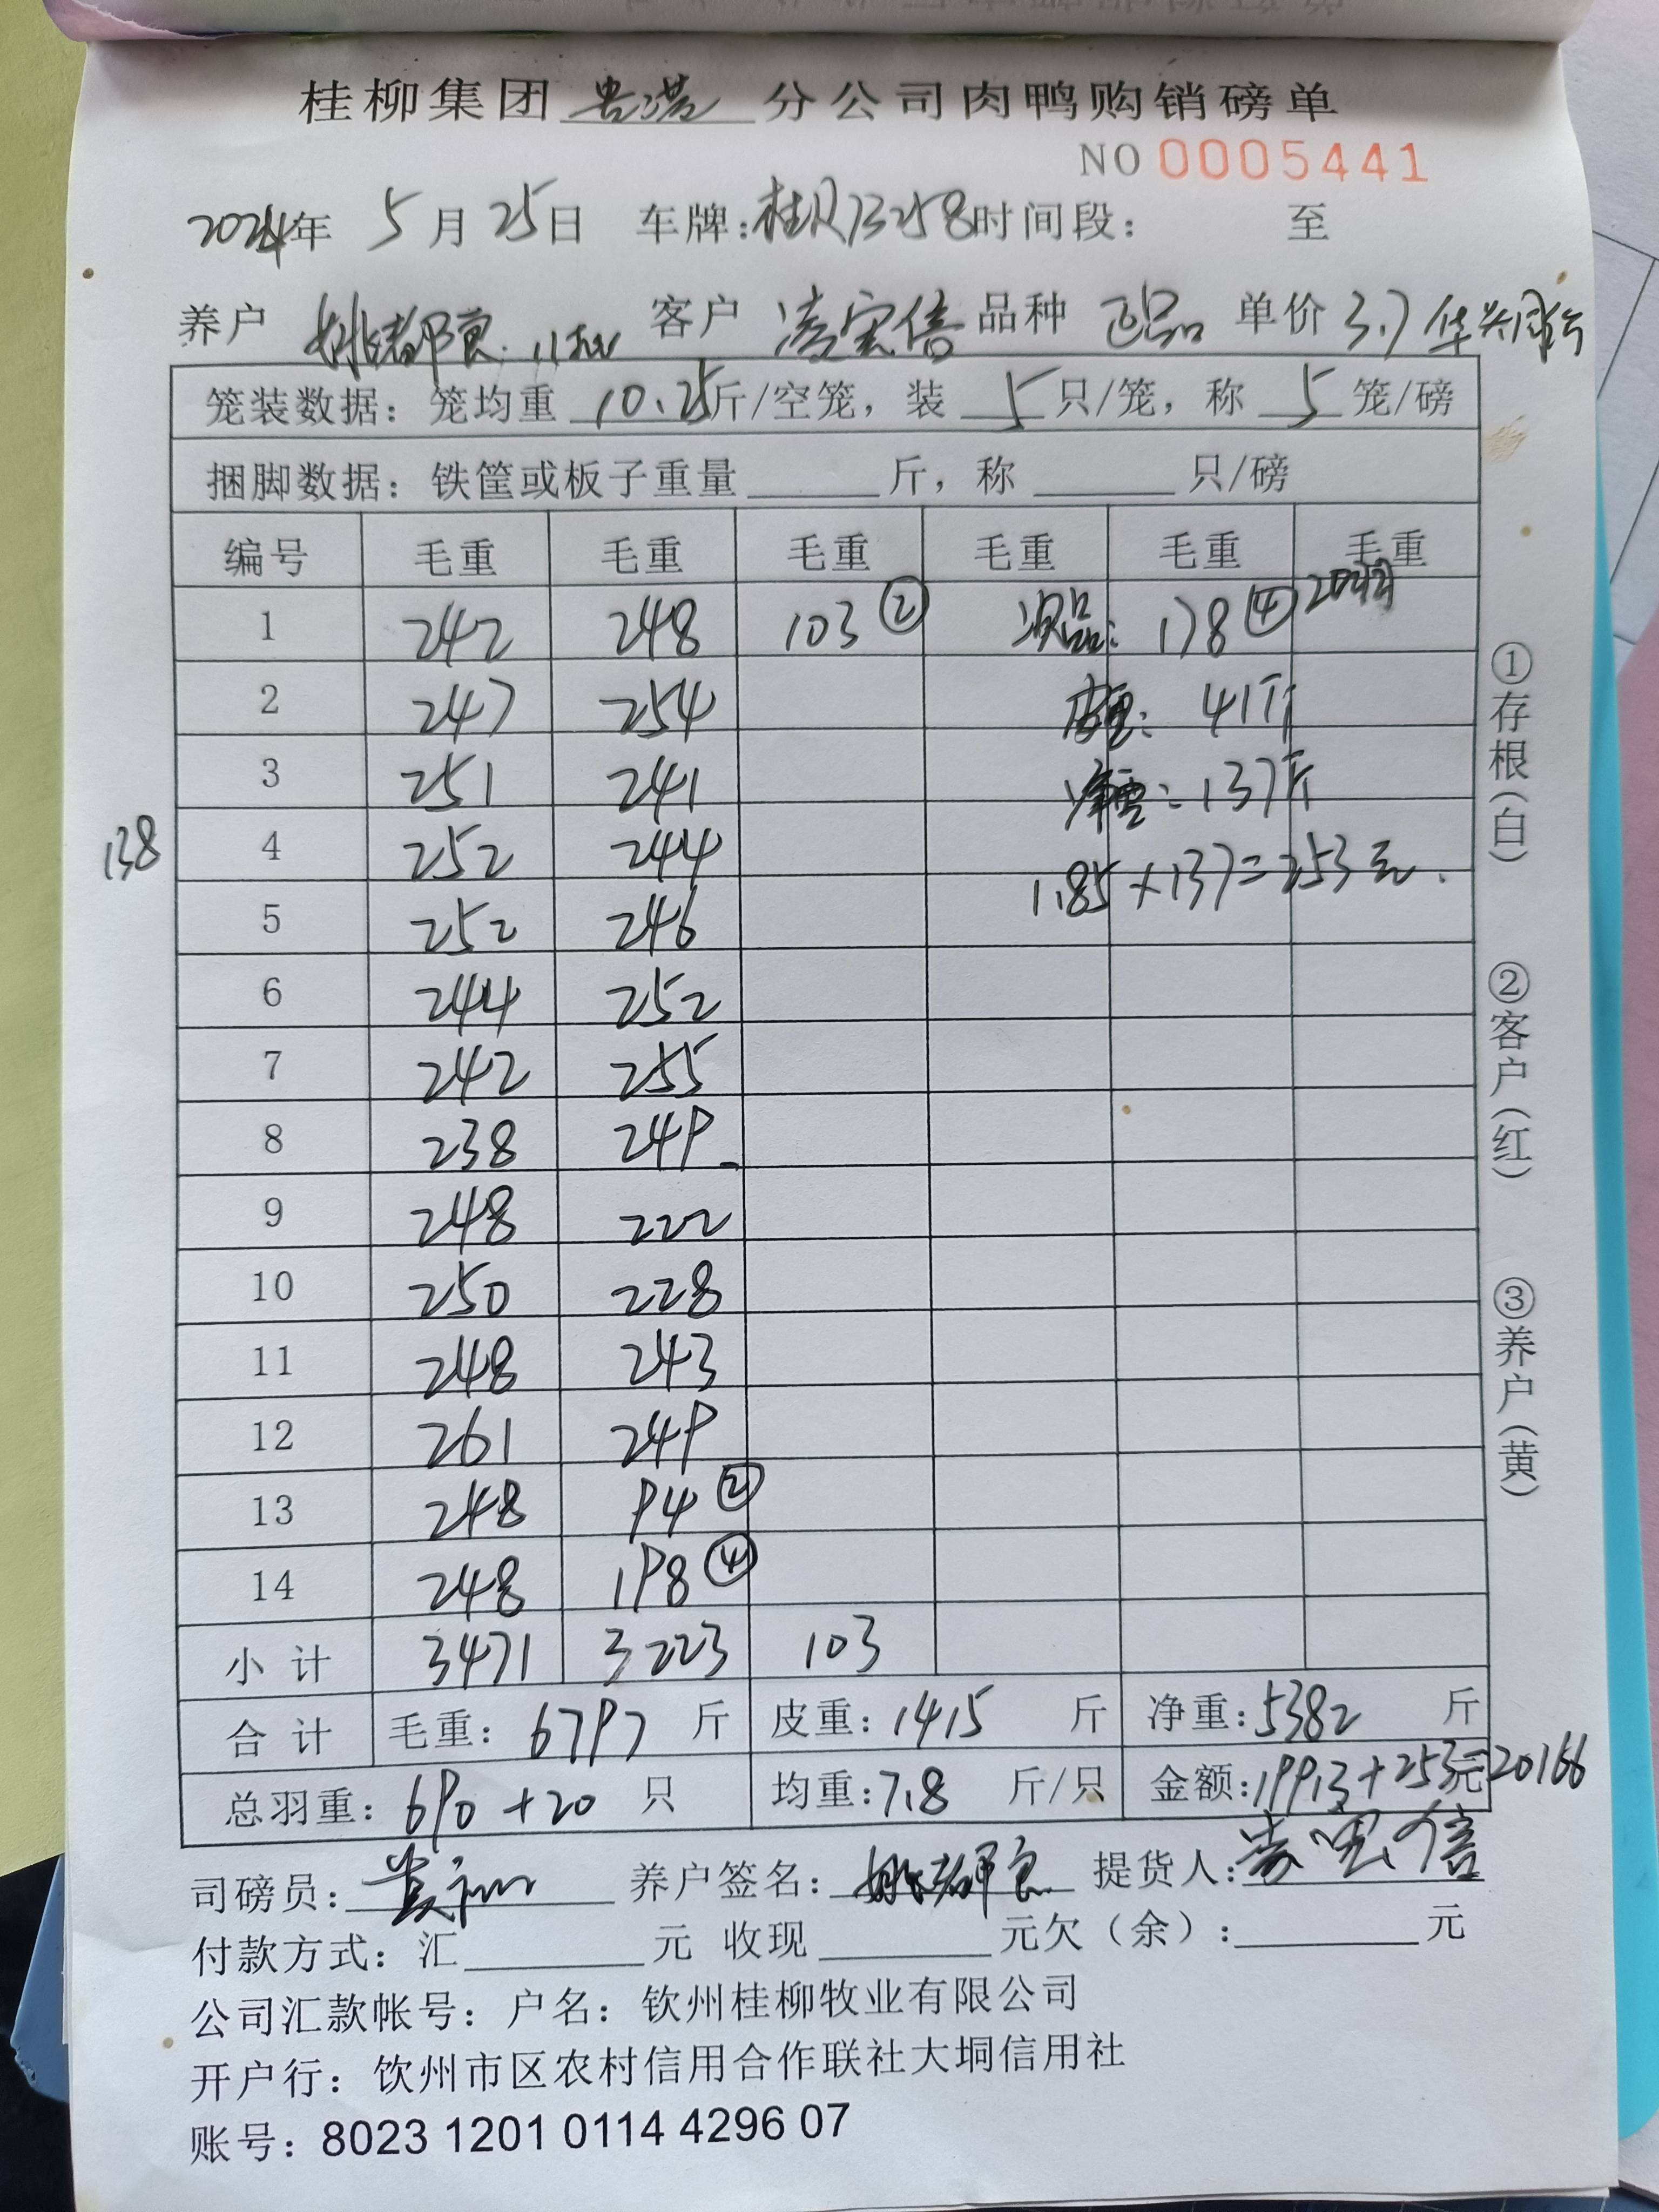 桂柳集团 贵港 分公司肉鸭购销磅单
NO 0005441
2024年 5月 25日 车牌:桂R13258 时间段: 至
养户 姚都良 客户 凌宝信 品种 正品 单价 3.7
笼装数据:笼均重 10.25 斤/空笼,装 5 只/笼,称 5 笼/磅
捆脚数据:铁筐或板子重量 斤,称 只/磅
编号 毛重 毛重 毛重 毛重 毛重 毛重
1 242 248 103 ② 次品: 178 ④ 20只
2 247 254 皮重: 41斤
3 251 241 净重: 137斤
138
4 252 244 1.85×137=253元.
5 252 246
6 244 252
7 242 255
8 238 249
9 248 222
10 250 228
11 248 243
12 261 249
13 248 94 ②
14 248 198 ④
小计 3471 3223 103
合计 毛重: 6797 斤 皮重: 1415 斤 净重: 5382 斤
总羽重: 690+20 只 均重: 7.8 斤/只 金额: 19913+253元=20166
司磅员: 养户签名: 姚都良 提货人: 凌宝信
付款方式:汇 元 收现 元欠(余): 元
公司汇款帐号:户名:钦州桂柳牧业有限公司
开户行:钦州市区农村信用合作联社大垌信用社
账号:8023 1201 0114 4296 07
①存根(白)
②客户(红)
③养户(黄)